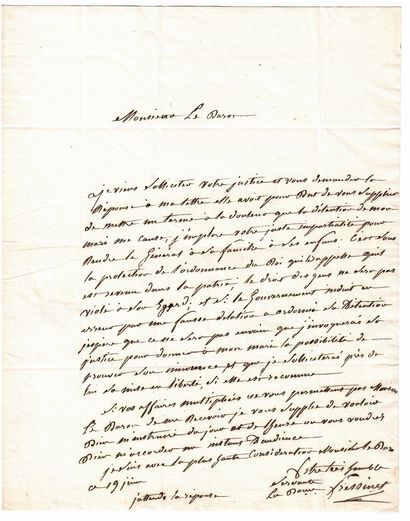 Monsieur Le Baron
je viens solliciter votre justice et vous demander la
Réponse à ma lettre elle avoit pour But de vous supplier
de mettre un terme à la douleur que la détention de mon
mari me cause, j'implore votre juste impartialité pour
Rendre le Général à sa famille à ses enfans. C'est sous
la protection de l'ordonnance du Roi qui l'appelle qu'il
est revenu dans sa patrie, le droit des gens ne sera pas
violé à son Egard, et si le Gouvernement induit en
erreur par une fausse délation a ordonné sa Détention
j'espère que ce ne sera pas envain que j'invoquerai sa
justice pour donner à mon mari la possibilité de
prouver son innocence et que je solliciterai près de
lui sa mise en liberté, si elle est reconnue
Si vos affaires multipliées ne vous permettent pas Monsieur
Le Baron de me Recevoir je vous supplie de vouloir
Bien m'instruire du jour et de l'heure où vous voudrez
Bien m'accorder un instant D'audience
je suis avec la plus haute Considération Monsieur le Baron
Votre très humble
ce 19 juin
servante
La Baronne Fressinet
j'attends la réponse